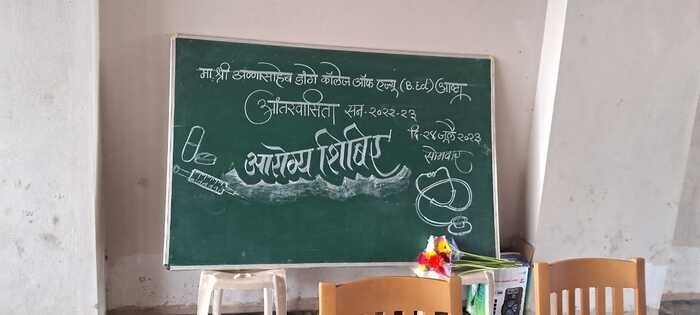 मा. श्री अण्णासाहेब डांगे कॉलेज ऑफ एज्यु (B.Ed) आष्टा
आंतरवासिता सन-२०२२-२३
दि-२४ जुलै २०२३
सोमवार
आरोग्य शिबिर